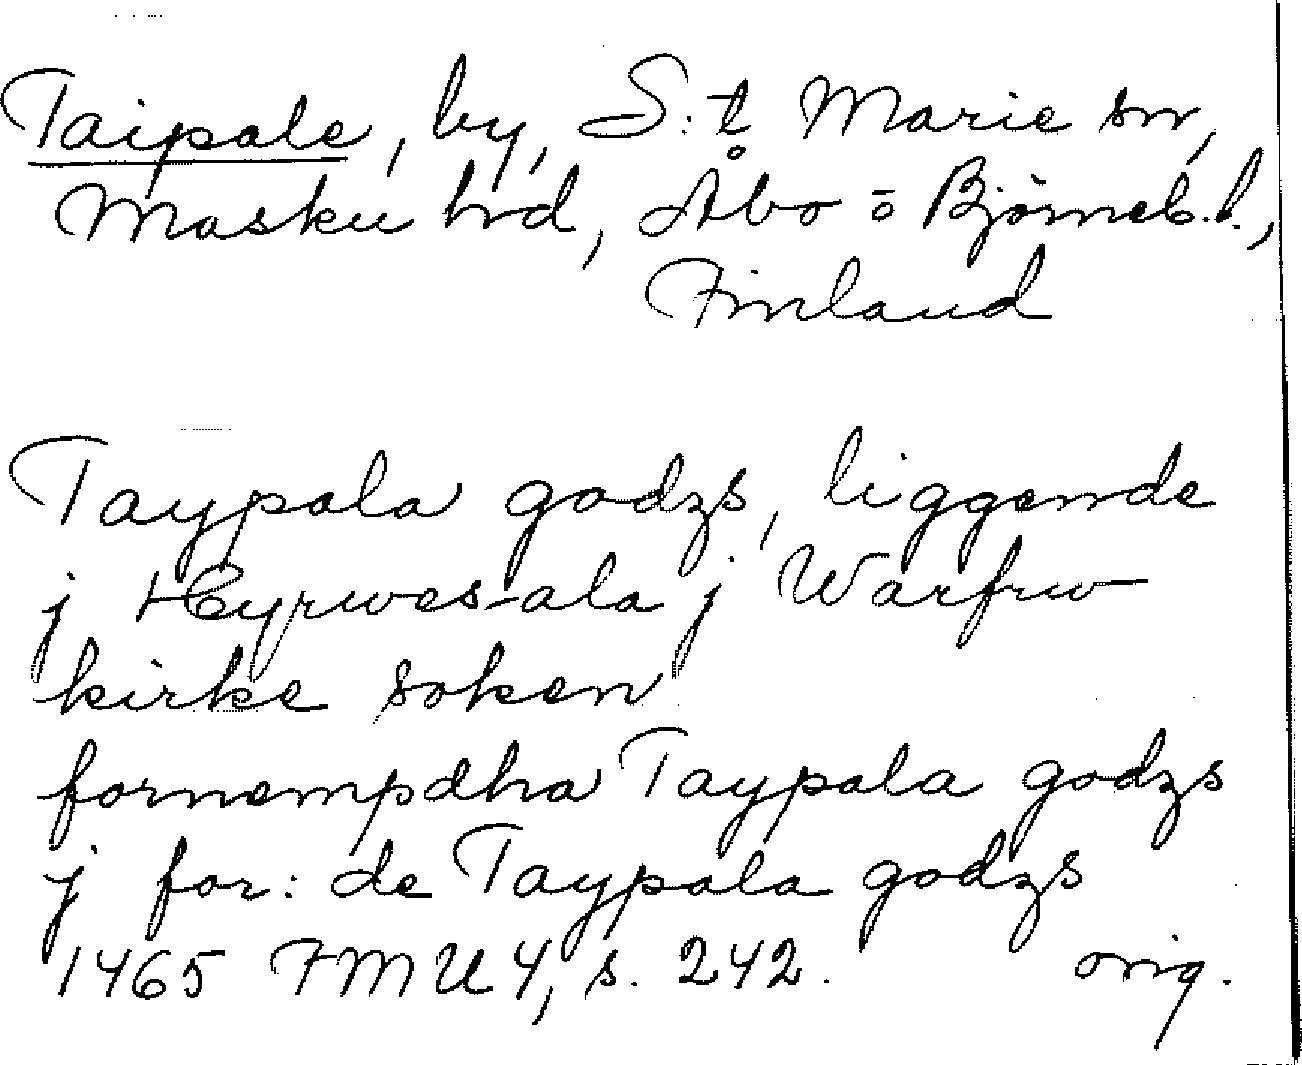 Taipale, by, S:t Marie sn,
Masku hrd, Åbo o Björneb. l.,
Finland
Taypala godzs, liggende
j Hyrwes-ala j Warfrw
kirke soken
fornempdha Taypala godzs
j for: de Taypala godzs
1465 FMU 4, s. 242. orig.